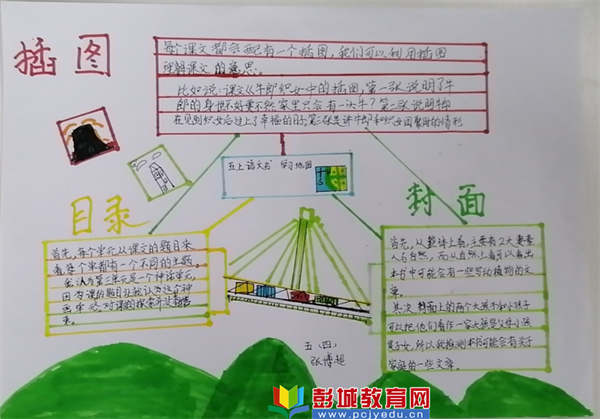 插图
每个课文都会配有一个插图,我们可以利用插图
理解课文的意思。
比如说:课文《牛郎织女中的插图,第一张说明了牛
郎的身世不好要不然家里只会有一头牛?第二张说明牛郎
在见到织女后过上了幸福的日子,第三张是讲牛郎和织女团聚时的情形
五上语文书 学习地图
目录
首先,每个单元从课文的题目来
看,每个单都有一个不同的主题。
我认为第三单元是一个神话单元,
因为课的题目让我认为这个神
来。
封面
首先,从整体上看,主要有2大要素
人与自然,而从自然上看可以看出
本书中可能会有一些写动植物的文
章。
其次,封面上的两个大孩子和小孩子
可以把他们看作一家
家庭的一些文章。
五(四)
张博超
彭城教育网
www.pcjyedu.cn